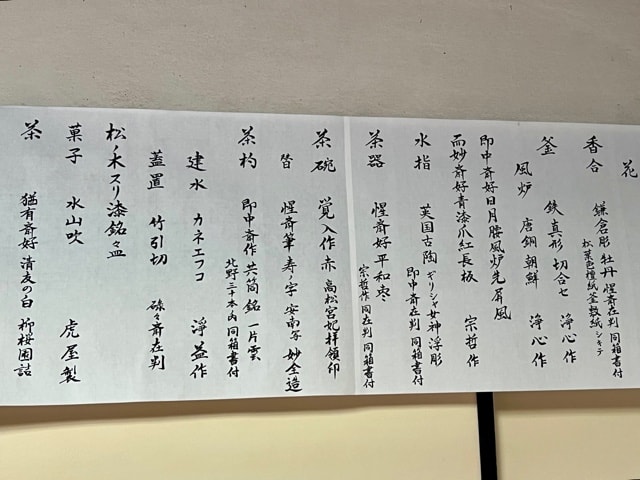 花
香合 鎌倉彫 牡丹 惺斎在判 同箱書付
松葉色檀紙釜敷紙シキテ
釜 鉄真形 切合セ 浄心作
風炉 唐銅朝鮮 浄心作
即中斎好日月腰風炉先屏風
而妙斎好青漆爪紅長板 宗哲作
水指 英国古陶 ギリシャ女神浮彫
即中斎在判 同箱書付
茶器 惺斎好 平和棗
宗哲作 同在判 同箱書付
茶碗 覚入作 赤 高松宮妃拝領印
皆 惺斎筆 寿ノ字 安南写 妙全造
茶杓 即中斎作 共筒 銘 一片雲
北野三十本内 同箱書付
建水 カネエフコ 浄益作
蓋置 竹引切 碌々斎在判
松ノ木スリ漆銘々皿
菓子 水山吹 虎屋製
茶 猶有斎好 清友の白 柳桜園詰